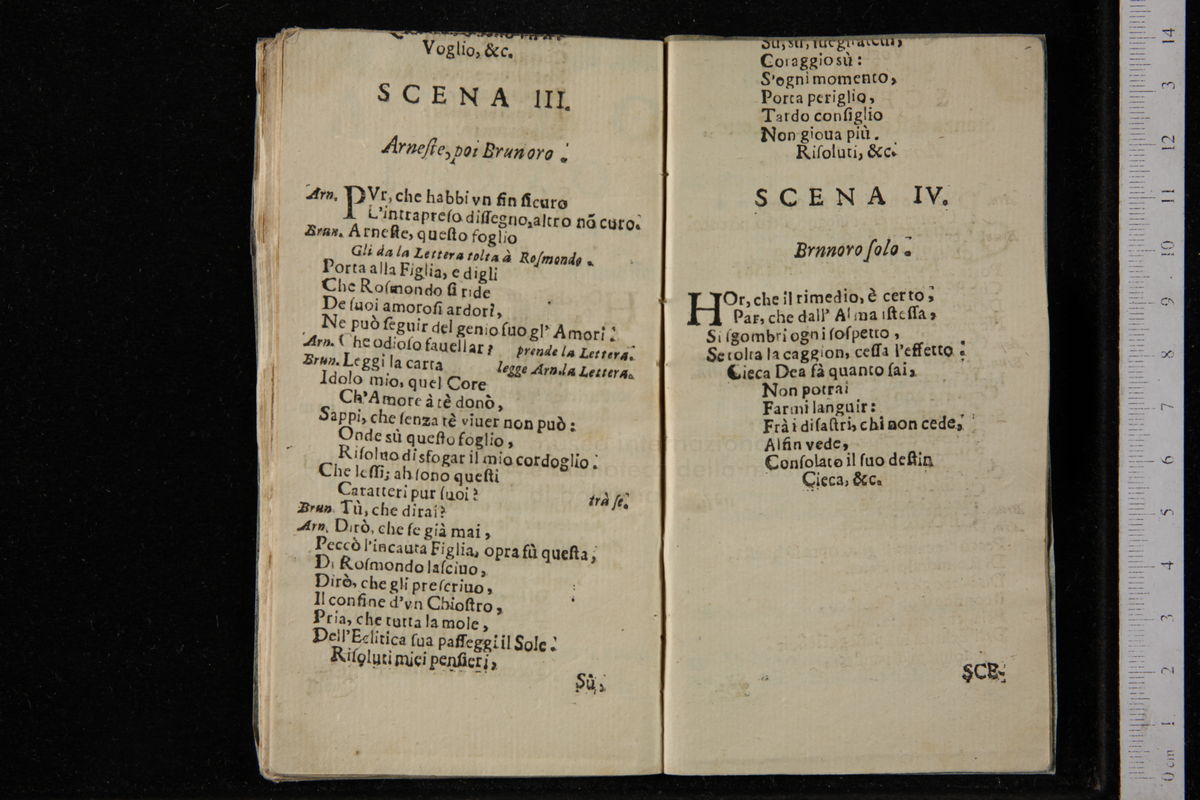 Voglio, &c.
SCENA III.
Arneſte, poi Brunoro.
Arn. PVr, che habbi vn fin ſicuro
L'intrapreſo diſſegno, altro nõ curo.
Brun. Arneſte, queſto foglio
Gli da la Lettera tolta à Roſmondo.
Porta alla Figlia, e digli
Che Roſmondo ſi ride
De ſuoi amoroſi ardori,
Ne può ſeguir del genio ſuo gl' Amori.
Arn. Che odioſo fauellar? prende la Lettera.
Brun. Leggi la carta legge Arn. la Lettera.
Idolo mio, quel Core
Ch'Amore à tè donò,
Sappi, che ſenza tè viuer non può:
Onde sù queſto foglio,
Riſoluo disfogar il mio cordoglio.
Che leſſi; ah ſono queſti
Caratteri pur ſuoi? trà ſe.
Brun. Tù, che dirai?
Arn. Dirò, che ſe già mai,
Peccò l'incauta Figlia, opra fù queſta,
Di Roſmondo laſciuo,
Dirò, che gli preſcriuo,
Il confine d'vn Chioſtro,
Pria, che tutta la mole,
Dell'Eclitica ſua paſſeggi il Sole.
Riſoluti miei penſieri,
Sù,
Sù, sù, ſuegliateui,
Coraggio sù:
S'ogni momento,
Porta periglio,
Tardo conſiglio
Non gioua più.
Riſoluti, &c.
SCENA IV.
Brnnoro ſolo.
HOr, che il rimedio, è certo,
Par, che dall' Alma iſteſſa,
Si ſgombri ogni ſoſpetto,
Se tolta la caggion, ceſſa l'effetto:
Cieca Dea fà quanto ſai,
Non potrai
Farmi languir:
Frà i diſaſtri, chi non cede,
Alfin vede,
Conſolato il ſuo deſtin
Cieca, &c.
SCE-
0 cm 1 2 3 4 5 6 7 8 9 10 11 12 3 14